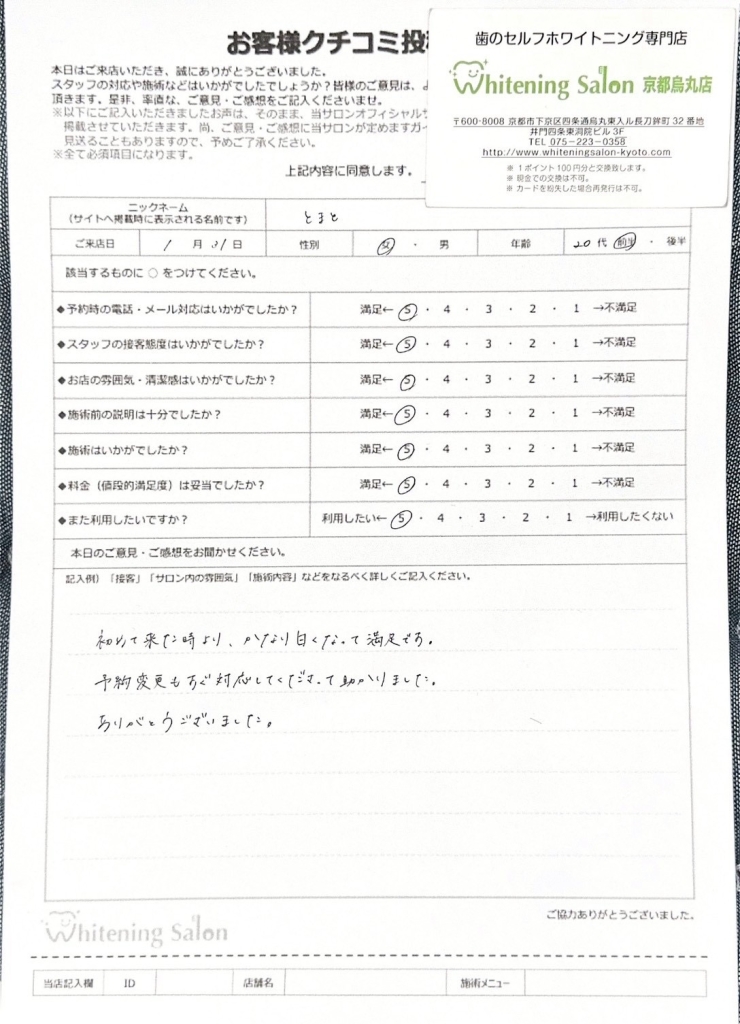 お客様クチコミ投
歯のセルフホワイトニング専門店
Whitening Salon 京都烏丸店
〒600-8008 京都市下京区四条通烏丸東入ル長刀鉾町 32 番地
井門四条東洞院ビル 3F
TEL 075-223-0358
http://www.whiteningsalon-kyoto.com
※ 1 ポイント 100 円分と交換致します。
※ 現金での交換は不可。
※ カードを紛失した場合再発行は不可。
本日はご来店いただき、誠にありがとうございました。
スタッフの対応や施術などはいかがでしたでしょうか?皆様のご意見は、よ
頂きます。是非、率直な、ご意見・ご感想をご記入くださいませ。
※以下にご記入いただきましたお声は、そのまま、当サロンオフィシャルサ
掲載させていただきます。尚、ご意見・ご感想に当サロンが定めますガイ
見送ることもありますので、予めご了承ください。
※全て必須項目になります。
上記内容に同意します。
ニックネーム
(サイトへ掲載時に表示される名前です)
とまと
ご来店日 1 月 31 日 性別 女 ・ 男 年齢 20 代 前半 ・ 後半
該当するものに ○ をつけてください。
◆予約時の電話・メール対応はいかがでしたか? 満足← 5 ・ 4 ・ 3 ・ 2 ・ 1 →不満足
◆スタッフの接客態度はいかがでしたか? 満足← 5 ・ 4 ・ 3 ・ 2 ・ 1 →不満足
◆お店の雰囲気・清潔感はいかがでしたか? 満足← 5 ・ 4 ・ 3 ・ 2 ・ 1 →不満足
◆施術前の説明は十分でしたか? 満足← 5 ・ 4 ・ 3 ・ 2 ・ 1 →不満足
◆施術はいかがでしたか? 満足← 5 ・ 4 ・ 3 ・ 2 ・ 1 →不満足
◆料金(値段的満足度)は妥当でしたか? 満足← 5 ・ 4 ・ 3 ・ 2 ・ 1 →不満足
◆また利用したいですか? 利用したい← 5 ・ 4 ・ 3 ・ 2 ・ 1 →利用したくない
本日のご意見・ご感想をお聞かせください。
記入例)「接客」「サロン内の雰囲気」「施術内容」などをなるべく詳しくご記入ください。
初めて来た時より、かなり白くなって満足です。
予約変更もすぐ対応してくださって助かりました。
ありがとうございました。
ご協力ありがとうございました。
Whitening Salon
当店記入欄 ID 店舗名 施術メニュー